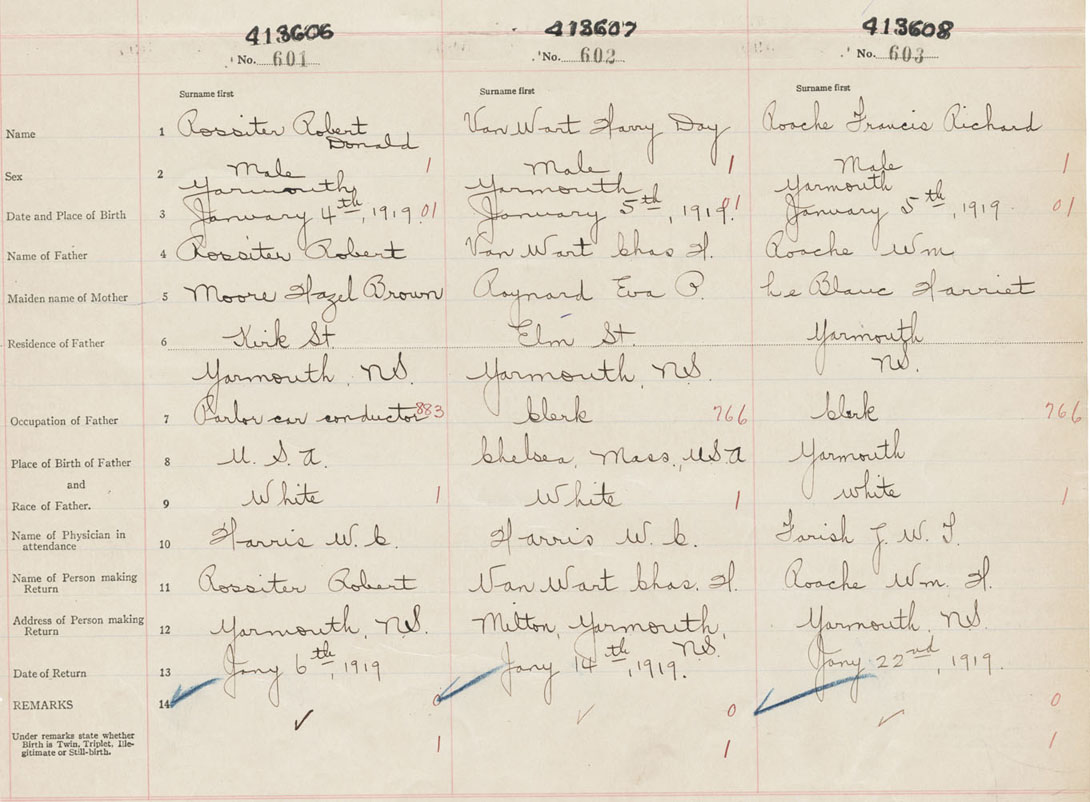 413606 413607 413608
No. 601 No. 602 No. 603
Surname first Surname first Surname first
Name 1 Rossiter Robert Van Wart Harry Day Roache Francis Richard
Donald
Sex 2 Male 1 Male 1 Male 1
Yarmouth Yarmouth Yarmouth
Date and Place of Birth 3 January 4th, 1919 01 January 5th, 1919. 01 January 5th, 1919 01
Name of Father 4 Rossiter Robert Van Wart Chas H. Roache Wm
Maiden name of Mother 5 Moore Hazel Brown Raynard Eva P. Le Blanc Harriet
Residence of Father 6 Kirk St. Elm St. Yarmouth
Yarmouth, NS. Yarmouth, NS. NS.
Occupation of Father 7 Parlor car conductor 883 Clerk 766 Clerk 766
Place of Birth of Father 8 U. S. A. Chelsea, Mass, USA Yarmouth
and
Race of Father. 9 White 1 White 1 white 1
Name of Physician in
attendance 10 Harris W. C. Harris W. C. Farish J. W. T.
Name of Person making
Return 11 Rossiter Robert Van Wart Chas. H. Roache Wm. H.
Address of Person making
Return 12 Yarmouth, NS. Milton, Yarmouth, NS. Yarmouth, NS.
Date of Return 13 Jany 6th, 1919 Jany 14th, 1919. Jany 22nd, 1919.
REMARKS 14 0 0 0
Under remarks state whether
Birth is Twin, Triplet, Ille-
gitimate or Still-birth. 1 1 1